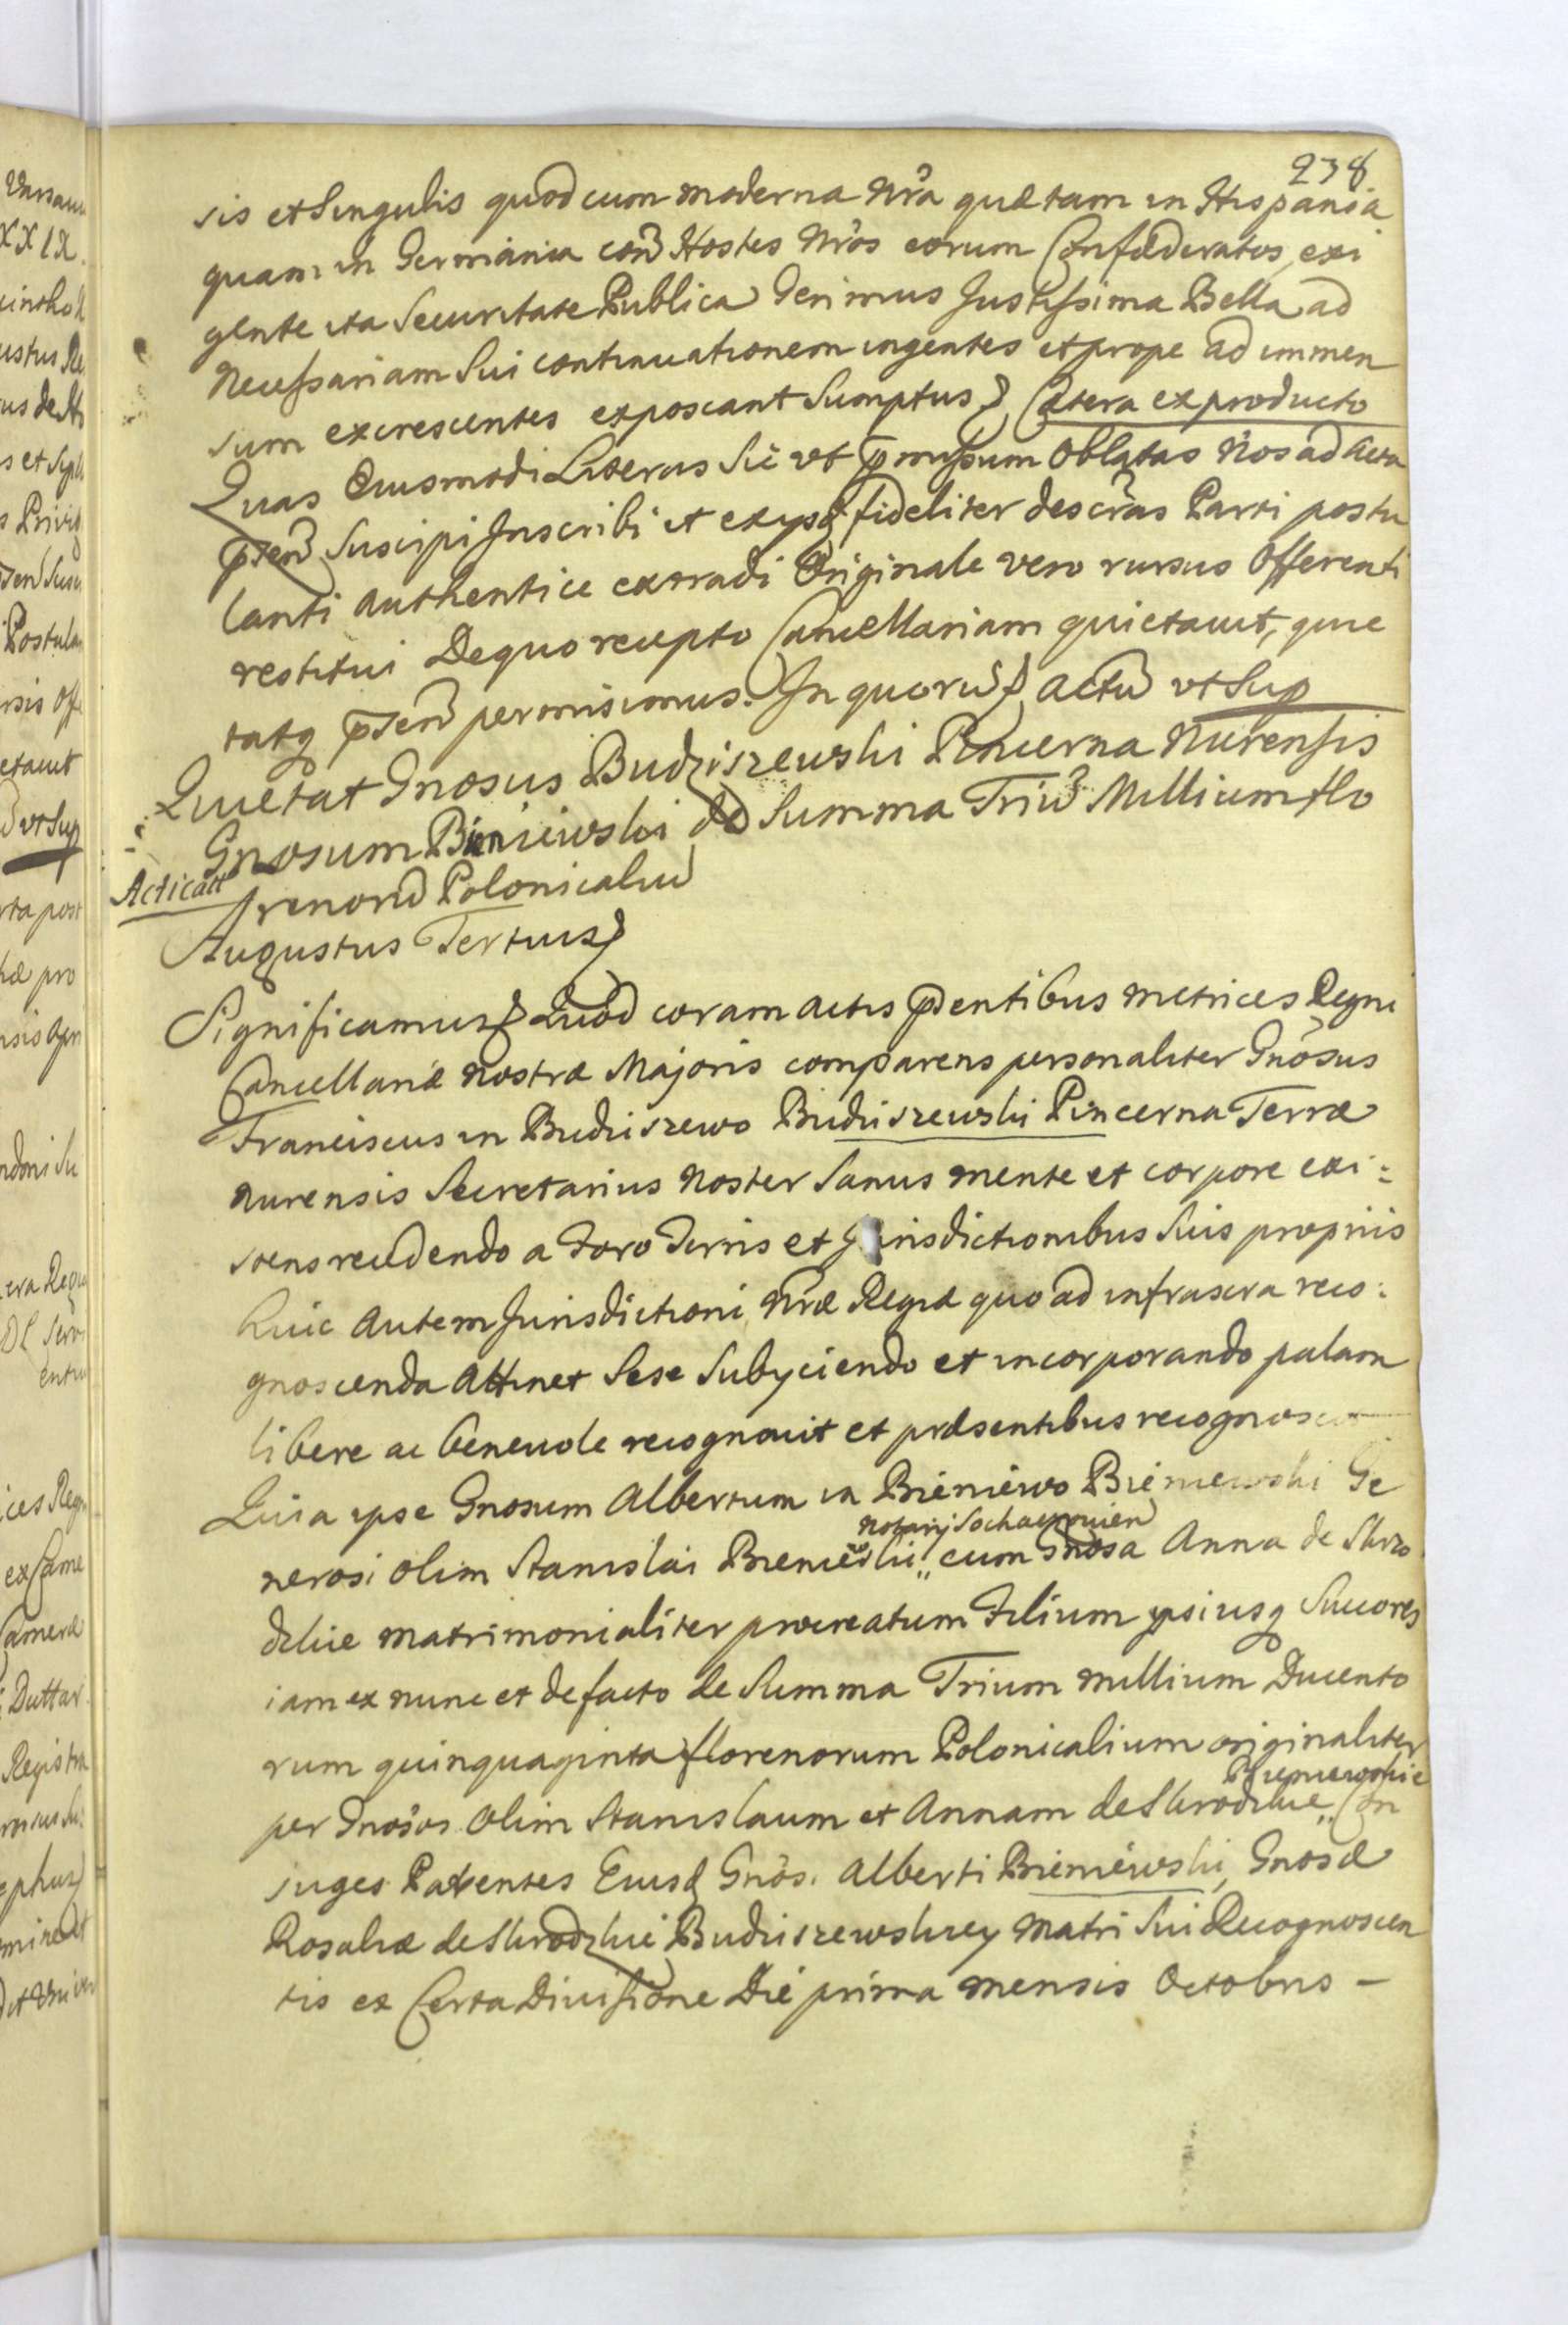 238
sis et Singulis quod cum moderna Nrã quæ tam in Hispania
quam in Germania con̄ Hostes Nrõs eorum Confæderatos, exi
gente ita Securitate Publica Gerimus Justissima Bella ad
Necessariam Sui continuationem ingentes et prope ad immen
sum excrescentes exposcant Sumptus Cætera ex producto
Quas Eiusmodi Literas Sic vt p̄missum Oblatas Nos ad Acta
p̄sen̄ Suscipi Inscribi et ex ysq fideliter descr̃as Parti postu
lanti Authentice extradi Originale vero rursus Offerenti
restitui De quo recepto Cancellariam quietauit, quie
tatq p̄sen̄ permisimus. In quorū Actū vt Sup
Quietat Gnosus Budziszewski Pincerna Nurensis
Gnosum Bieniewski de Summa Triū Millium flo
Acticatt
renorū Polonicaliū
Augustus Tertius
Significamus Quod coram Actis p̄sentibus Metrices Regni
Cancellariæ Nostræ Majoris comparens personaliter Gnõsus
Franciscus in Budziszewo Budziszewski Pincerna Terræ
Nurensis Secretarius Noster Sanus mente et corpore exi:
stens recedendo a Foro Terris et Jurisdictionibus Suis propriis
huic Autem Jurisdictioni Nræ Regiæ quo ad infrascra reco:
gnoscenda Attinet Sese Subyciendo et incorporando palam
libere ac beneuole recognouit et præsentibus recognoscit
Quia ipse Gnosum Albertum in Bieniewo Bieniewski Ge
Notarij Sochaczouien
nerosi olim Stanislai Bieniewski cum Gnosa Anna de Skro
dzkie Matrimonialiter procreatum Filium ipsiusq Succores
iam ex nunc et de facto de Summa Trium Millium Ducento
rum quinquaginta florenorum Polonicalium originaliter
Bieniewskie
per Gnosos olim Stanislaum et Annam de Skrodzkie Con
iuges Parentes Eiusd Gnos. Alberti Bieniewski, Gnosæ
Rosaliæ de Skrodzkie Budziszewskiey Matri Sui Recognoscen
tis ex Certa Diuisione Die prima Mensis Octobris –